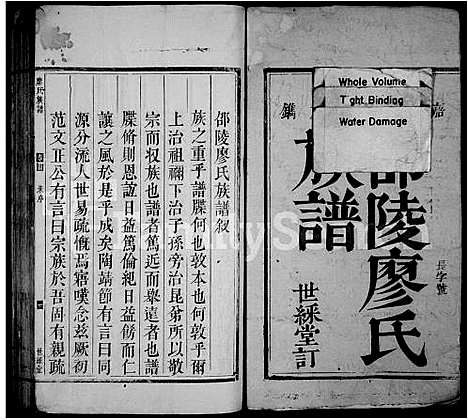 Whole Volume
Tight Binding
Water Damage
嘉
鐫
邵陵廖氏
族譜
長字號
世綵堂訂
邵陵廖氏族譜叙
族之重乎譜牒何也敦本也何敦乎爾
上治祖禰下治子孫旁治昆弟所以敬
宗而收族也譜者篤近而舉遠者也譜
牒脩則恩誼日益篤倫紀日益敦而仁
讓之風於是乎成矣陶靖節有言曰同
源分流人世易疏慨焉寤嘆念茲厥初
范文正公有言曰宗族於吾固有親疏
廖氏族譜
卷首
末序
一
世綵堂